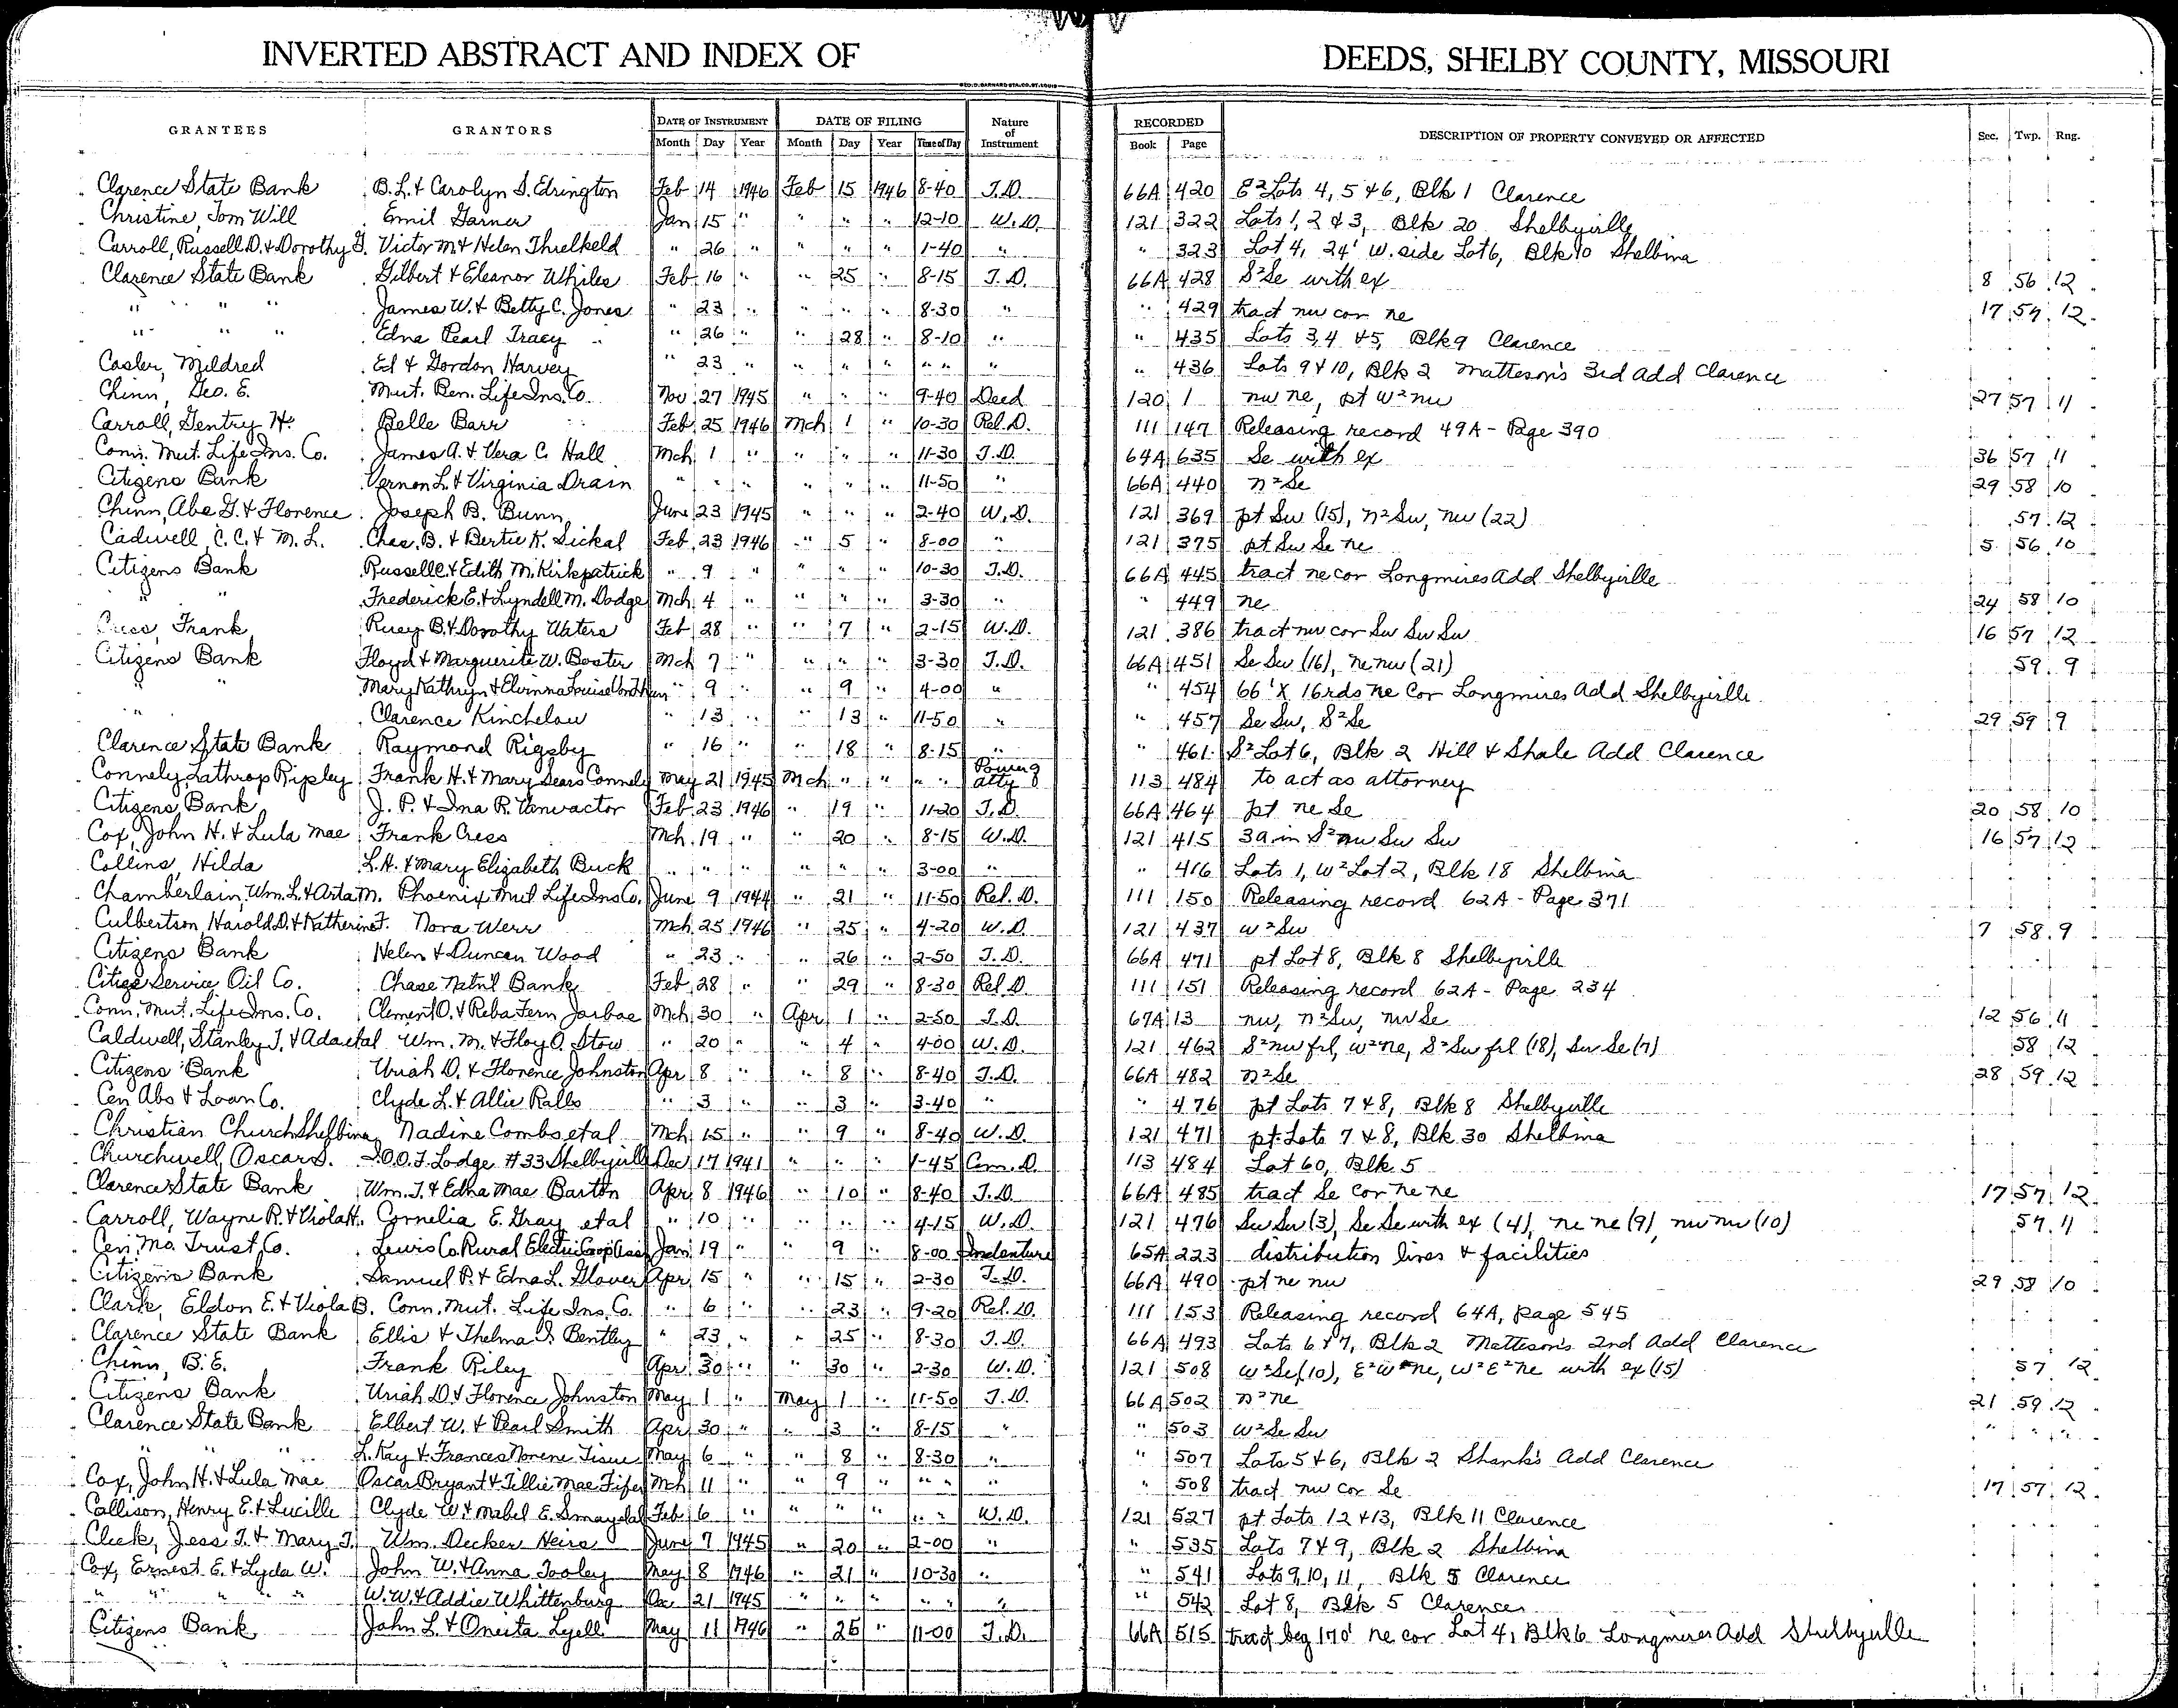 INVERTED ABSTRACT AND INDEX OF DEEDS, SHELBY COUNTY, MISSOURI
GEO. D. BARNARD STA. CO. ST. LOUIS
GRANTEES GRANTORS DATE OF INSTRUMENT DATE OF FILING Nature of Instrument RECORDED DESCRIPTION OF PROPERTY CONVEYED OR AFFECTED Sec. Twp. Rng.
Month Day Year Month Day Year Time of Day Book Page
Clarence State Bank B. L. & Carolyn S. Edrington Feb 14 1946 Feb 15 1946 8-40 T.D. 66A 420 E² Lots 4, 5 & 6, Blk 1 Clarence
Christine, Tom Will Emil Garner Jan 15 " " " " 12-10 W.D. 121 322 Lots 1, 2 & 3, Blk 20 Shelbyville
Carroll, Russell D. & Dorothy G. Victor M. & Helen Thielkeld " 26 " " " " 1-40 " " 323 Lot 4, 24' W. side Lot 6, Blk 10 Shelbina
Clarence State Bank Gilbert & Eleanor Whiles Feb 16 " " 25 " 8-15 T.D. 66A 428 S² Se with ex 8 56 12
" " " James W. & Betty C. Jones " 23 " " " " 8-30 " " 429 tract nw cor ne 17 57 12
" " " Edna Pearl Tracy " 26 " " 28 " 8-10 " " 435 Lots 3, 4 & 5, Blk 9 Clarence
Casler, Mildred Ed & Gordon Harvey " 23 " " " " " " " " 436 Lots 9 & 10, Blk 2 Matteson's 3rd Add Clarence
Chinn, Geo. E. Mut. Ben. Life Ins. Co. Nov 27 1945 " " " 9-40 Deed 120 1 nw ne, pt w² nw 27 57 11
Carroll, Gentry H. Belle Barr Feb 25 1946 Mch 1 " 10-30 Rel. D. 111 147 Releasing record 49A - Page 390
Conn. Mut. Life Ins. Co. James A. & Vera C. Hall Mch 1 " " " " 11-30 T.D. 64A 635 Se with ex 36 57 11
Citizens Bank Vernon L. & Virginia Drain " " " " " " 11-50 " 66A 440 n² Se 29 58 10
Chinn, Abe G. & Florence Joseph B. Bunn June 23 1945 " " " 2-40 W.D. 121 369 pt Sw (15), n² Sw, nw (22) 57 12
Cadwell, C. C. & M. L. Chas. B. & Bertie K. Sickal Feb 23 1946 " 5 " 8-00 " 121 375 pt Sw Se ne 5 56 10
Citizens Bank Russell E. & Edith M. Kirkpatrick " 9 " " " " 10-30 T.D. 66A 445 tract ne cor Longmires Add Shelbyville
" " Frederick E. & Lyndell M. Dodge Mch 4 " " " " 3-30 " " 449 ne 24 58 10
Cress, Frank Ruey B. & Dorothy Waters Feb 28 " " 7 " 2-15 W.D. 121 386 tract nw cor Sw Sw Sw 16 57 12
Citizens Bank Floyd & Marguerite W. Boster Mch 7 " " " " 3-30 T.D. 66A 451 Se Sw (16), ne nw (21) 59 9
" " Mary Kathryn & Elvinna Louise " 9 " " 9 " 4-00 " " 454 66' X 16 rds ne cor Longmires Add Shelbyville
" Clarence Kinchelow " 13 " " 13 " 11-50 " " 457 Se Sw, S² Se 29 59 9
Clarence State Bank Raymond Rigsby " 16 " " 18 " 8-15 " " 461 S² Lot 6, Blk 2 Hill & Shale Add Clarence
Connely, Lathrop Ripley Frank H. & Mary Sears Connely May 21 1945 Mch " " " " Power of atty 113 484 to act as attorney
Citizens Bank J. P. & Ina R. Vanvactor Feb 23 1946 " 19 " 11-20 T.D. 66A 464 pt ne Se 20 58 10
Cox, John H. & Lula Mae Frank Cress Mch 19 " " 20 " 8-15 W.D. 121 415 3a. in S² nw Sw Sw 16 57 12
Collins, Hilda L. H. & Mary Elizabeth Buck " " " " " " 3-00 " " 416 Lots 1, W² Lot 2, Blk 18 Shelbina
Chamberlain, Wm. L. & Arta M. Phoenix Mut Life Ins Co. June 9 1944 " 21 " 11-50 Rel. D. 111 150 Releasing record 62A - Page 371
Culbertson, Harold D. & Katherine F. Nora Werr Mch 25 1946 " 25 " 4-20 W.D. 121 437 w² Sw 7 58 9
Citizens Bank Helen & Duncan Wood " 23 " " 26 " 2-50 T.D. 66A 471 pt Lot 8, Blk 8 Shelbyville
Cities Service Oil Co. Chase Natnl Bank Feb 28 " " 29 " 8-30 Rel D. 111 151 Releasing record 62A - Page 234
Conn. Mut. Life Ins. Co. Clement O. & Reba Fern Jarboe Mch 30 " Apr 1 " 2-50 T.D. 67A 13 nw, n² Sw, nw Se 12 56 11
Caldwell, Stanley T. & Ada etal Wm. M. & Floy O. Stow " 20 " " 4 " 4-00 W.D. 121 462 S² nw frl, w² ne, S² Sw frl (18), Sw Se (7) 58 12
Citizens Bank Uriah D. & Florence Johnston Apr 8 " " 8 " 8-40 T.D. 66A 482 n² Se 28 59 12
Cen Abs & Loan Co. Clyde L. & Allie Ralls " 3 " " 3 " 3-40 " " 476 pt Lots 7 & 8, Blk 8 Shelbyville
Christian Church Shelbina Nadine Combs etal Mch 15 " " 9 " 8-40 W.D. 121 471 pt Lots 7 & 8, Blk 30 Shelbina
Churchwell, Oscar S. I.O.O.F. Lodge #33 Shelbyville Dec 17 1941 " " " 1-45 Cem. D. 113 484 Lot 60, Blk 5
Clarence State Bank Wm. T. & Edna Mae Barton Apr 8 1946 " 10 " 8-40 T.D. 66A 485 tract Se cor ne ne 17 57 12
Carroll, Wayne R. & Viola H. Cornelia E. Gray etal " 10 " " " " 4-15 W.D. 121 476 Sw Sw (3), Se Se with ex (4), ne ne (9), nw nw (10) 57 11
Cen. Mo. Trust Co. Lewis Co. Rural Electric Coop Assn Jan 19 " " 9 " 8-00 Indenture 65A 223 distribution lines & facilities
Citizens Bank Samuel P. & Edna L. Glover Apr 15 " " 15 " 2-30 T.D. 66A 490 pt ne nw 29 58 10
Clark, Eldon E. & Viola B. Conn. Mut. Life Ins. Co. " 6 " " 23 " 9-20 Rel. D. 111 153 Releasing record 64A, page 545
Clarence State Bank Ellis & Thelma I. Bentley " 23 " " 25 " 8-30 T.D. 66A 493 Lots 6 & 7, Blk 2 Matteson's 2nd Add Clarence
Chinn, B. E. Frank Riley Apr 30 " " 30 " 2-30 W.D. 121 508 W² Se (10), E² W² ne, W² E² ne with ex (15) 57 12
Citizens Bank Uriah D. & Florence Johnston May 1 " May 1 " 11-50 T.D. 66A 502 n² ne 21 59 12
Clarence State Bank Elbert W. & Pearl Smith Apr 30 " " 3 " 8-15 " " 503 w² Se Sw " " "
" " " L. Kay & Frances Norene Tisue May 6 " " 8 " 8-30 " " 507 Lots 5 & 6, Blk 2 Shank's Add Clarence
Cox, John H. & Lula Mae Oscar Bryant & Tillie Mae Fifer Mch 11 " " 9 " " " " " 508 tract nw cor Se 17 57 12
Collison, Henry E. & Lucille Clyde W. & Mabel E. Smay etal Feb 6 " " " " " " W.D. 121 527 pt Lots 12 & 13, Blk 11 Clarence
Cleek, Jess T. & Mary J. Wm. Decker Heirs June 7 1945 " 20 " 2-00 " " 535 Lots 7 & 9, Blk 2 Shelbina
Cox, Ernest E. & Lyda W. John W. & Anna Tooley May 8 1946 " 21 " 10-30 " " 541 Lots 9, 10, 11, Blk 5 Clarence
" " " " " W. W. & Addie Whittenburg Dec 21 1945 " " " " " " " 542 Lot 8, Blk 5 Clarence
Citizens Bank John L. & Oneita Lyell May 11 1946 " 25 " 11-00 T.D. 66A 515 tract beg 170' ne cor Lot 4, Blk 6 Longmires Add Shelbyville